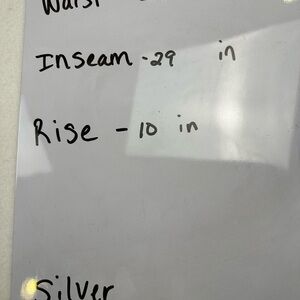 Waist
Inseam - 29 in
Rise - 10 in
Silver